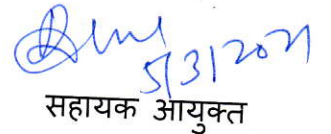 5/3/2021
सहायक आयुक्त